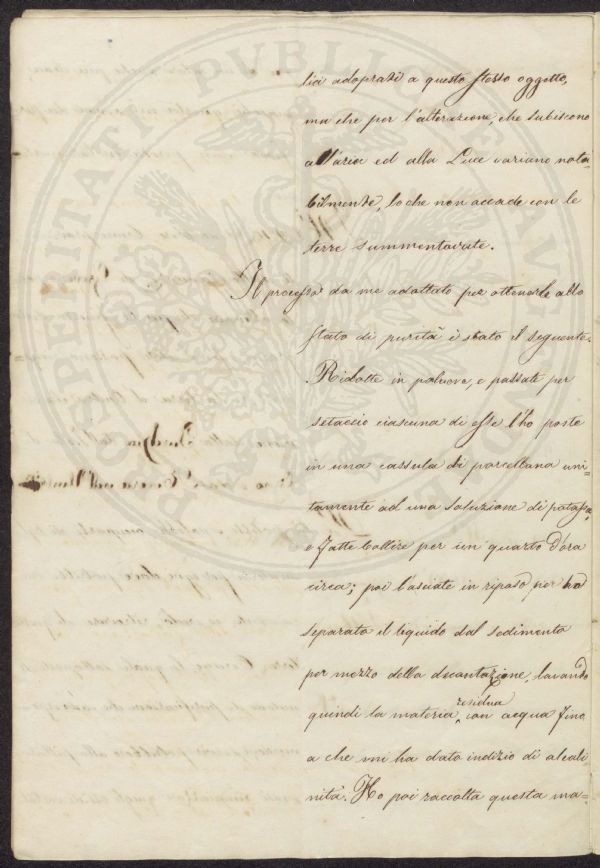 lia adoprati a questo stesso oggetto,
ma che per l'alterazione, che subiscono
all'aria ed alla Luce variano nota-
bilmente, lo che non accade con le
terre summentovate.
Il processo da me adottato per ottenerle allo
stato di purità è stato il seguente.
Ridotte in polvere, e passate per
setaccio ciascuna di esse l'ho poste
in una cassula di porcellana uni-
tamente ad una soluzione di potassa,
e fatte bollire per un quarto d'ora
circa; poi lasciate in riposo, per ho
separato il liquido dal sedimento
per mezzo della decantazione, lavando
quindi la materia residua con acqua fino
a che mi ha dato indizio di alcali
nità. Ho poi raccolta questa ma=
PROSPERITATI PUBLICAE AUGENDAE